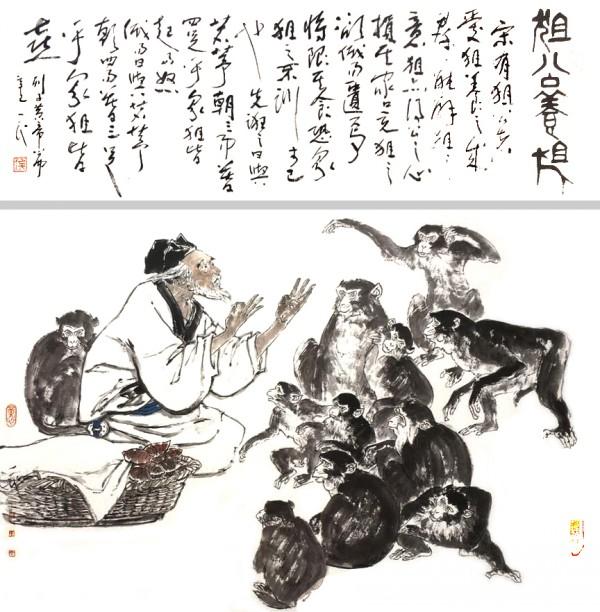 狙公養狙
宋有狙公者
愛狙養之成
群能解狙之
意狙亦得公之心
損其家口充狙之
欲俄而匱焉
將限其食恐眾
狙之不馴于己
也先誑之曰與
若芧朝三而暮
四足乎眾狙皆
起而怒
俄而曰與若芧
朝四而暮三足
乎眾狙皆
喜
列子黃帝篇